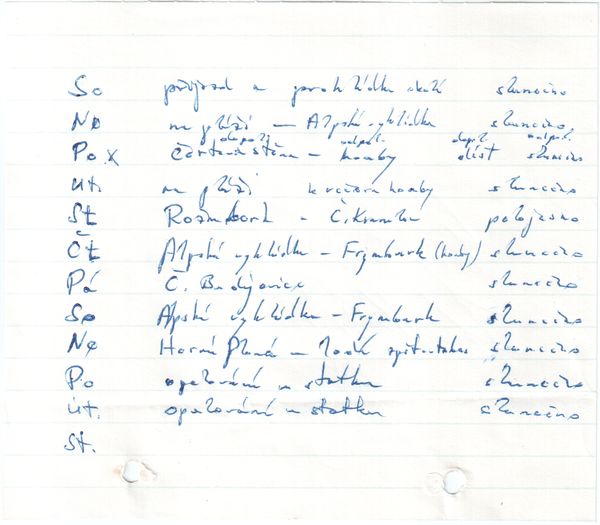 So příjezd a prohlídka okolí slunečno
Ne na pláži - Alpská vyhlídka slunečno
dopol. odpol. dopol. odpol.
Po x Čertova stěna - houby déšť slunečno
Út. na pláži k večeru houby slunečno
St Rožmberk - Č. Krumlov polojasno
Čt Alpská vyhlídka - Frymburk (houby) slunečno
Pá Č. Budějovice slunečno
So Alpská vyhlídka - Frymburk slunečno
Ne Horní Planá - lodí zpět slunečno
Po opalování u statku slunečno
Út. opalování u statku slunečno
St.